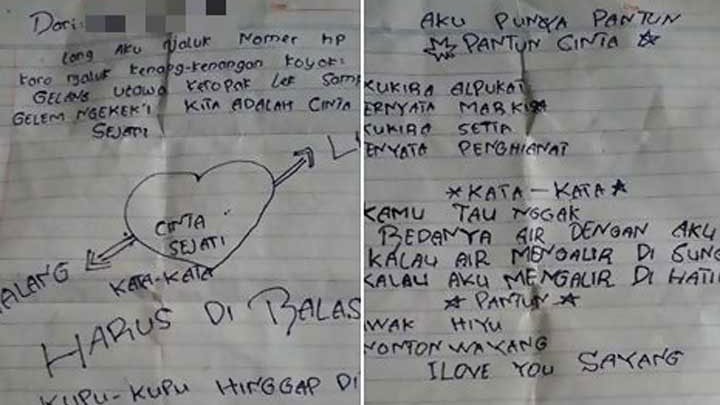 Dari:
Lang Aku njaluk Nomer hp
karo njaluk kenang-kenangan koyok:
GELANG utowo ketopak Lek
GELEM NGEKEK'I KITA ADALAH CINTA
SEJATI
CINTA
SEJATI
KATA-KATA
HARUS DI BALAS
KUPU-KUPU HINGGAP DI
AKU PUNYA PANTUN
PANTUN CINTA
KUKIRA ALPUKAT
ERNYATA MARKISA
KUKIRA SETIA
ENYATA PENGHIANAT
KATA-KATA
KAMU TAU NGGAK
BEDANYA AIR DENGAN AKU
KALAU AIR MENGALIR DI SUNG
KALAU AKU MENGALIR DI HATI
PANTUN
AWAK HIYU
NONTON WAYANG
I LOVE YOU SAYANG